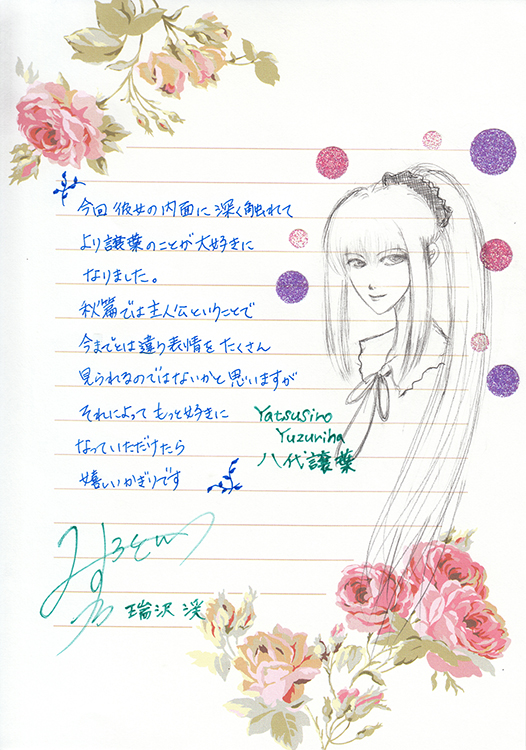 今回 彼女の内面に深く触れて
より譲葉のことが大好きに
なりました。
秋篇では主人公ということで
今までとは違う表情をたくさん
見られるのではないかと思いますが
それによってもっと好きに
なっていただけたら
嬉しいかぎりです
Yatsusiro
Yuzuriha
八代譲葉
瑞沢 渓